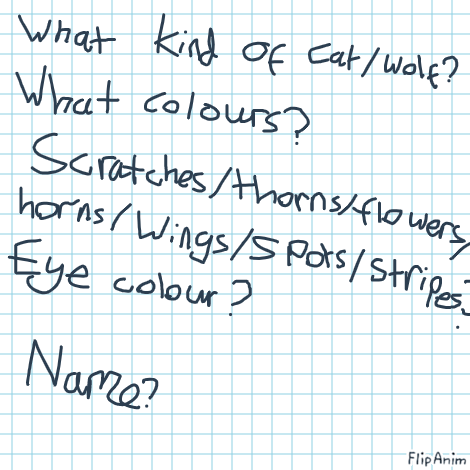 What kind of cat/wolf?
What colours?
Scratches/thorns/flowers/
horns/Wings/Spots/stripes?
Eye colour?
Name?
FlipAnim